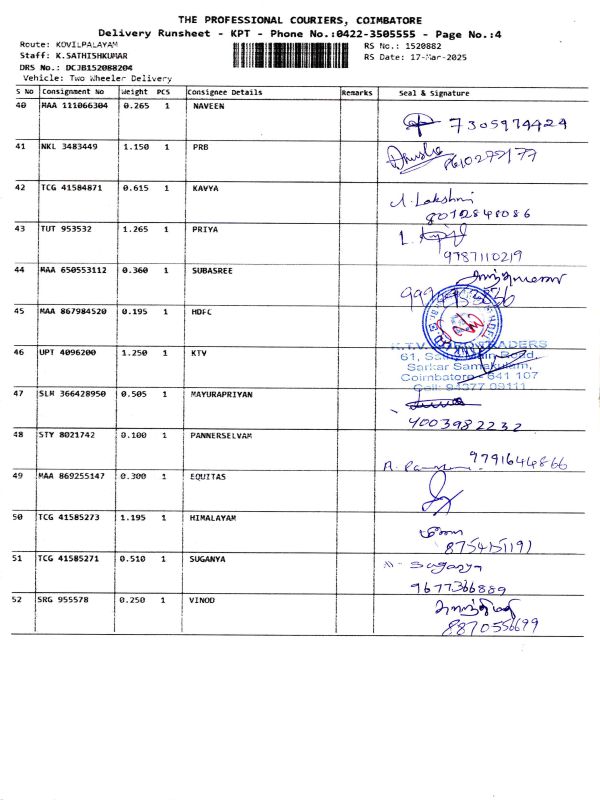 THE PROFESSIONAL COURIERS, COIMBATORE
Delivery Runsheet - KPT - Phone No.:0422-3505555 - Page No.:4
Route: KOVILPALAYAM RS No.: 1520882
Staff: K.SATHISHKUMAR RS Date: 17-Mar-2025
DRS No.: DCJB152088204
Vehicle: Two Wheeler Delivery
S No Consignment No Weight PCS Consignee Details Remarks Seal & Signature
40 MAA 111066304 0.265 1 NAVEEN
7305974424
41 NKL 3483449 1.150 1 PRB
42 TCG 41584871 0.615 1 KAVYA
Lakshmi
8072848086
43 TUT 953532 1.265 1 PRIYA
9787110219
44 MAA 650553112 0.360 1 SUBASREE
45 MAA 867984520 0.195 1 HDFC
46 UPT 4096200 1.250 1 KTV
TRADERS
61, Main Road,
Sarkar Samakulam,
Coimbatore - 641 107
Cell: 94377 09111
47 SLM 366428950 0.505 1 MAYURAPRIYAN
4003982232
48 STY 8021742 0.100 1 PANNERSELVAM
9791644866
49 MAA 869255147 0.300 1 EQUITAS
50 TCG 41585273 1.195 1 HIMALAYAM
8754151191
51 TCG 41585271 0.510 1 SUGANYA
Suganya
9677366889
52 SRG 955578 0.250 1 VINOD
8870556699